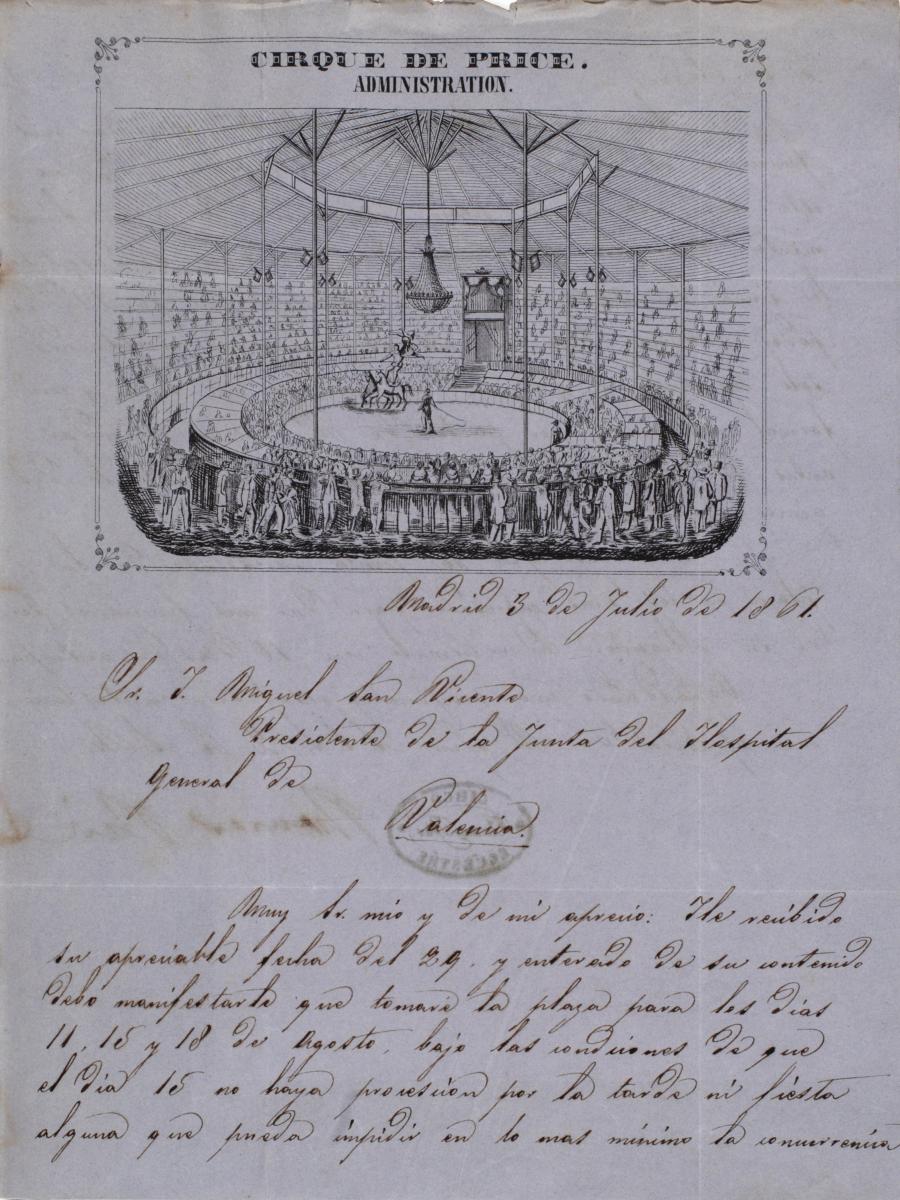 CIRQUE DE PRICE.
ADMINISTRATION.
Madrid 3 de Julio de 1861.
Sr. J. Miguel San Vicente
Presidente de la Junta del Hospital
General de
Valencia.
Muy Sr. mio y de mi aprecio: He recibido
su apreciable fecha del 29. y enterado de su contenido
debo manifestarle que tomaré la plaza para los dias
11, 15 y 18 de Agosto, bajo las condiciones de que
el dia 15 no haya procesion por la tarde ni fiesta
alguna que pueda impidir en lo mas minimo la concurrencia